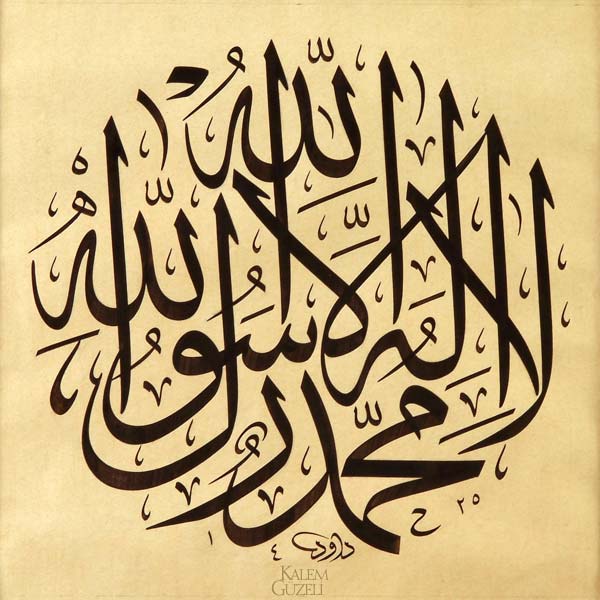 لا اله الا الله
محمد رسول الله
داود
١٤٢٥
KALEM
GUZELI